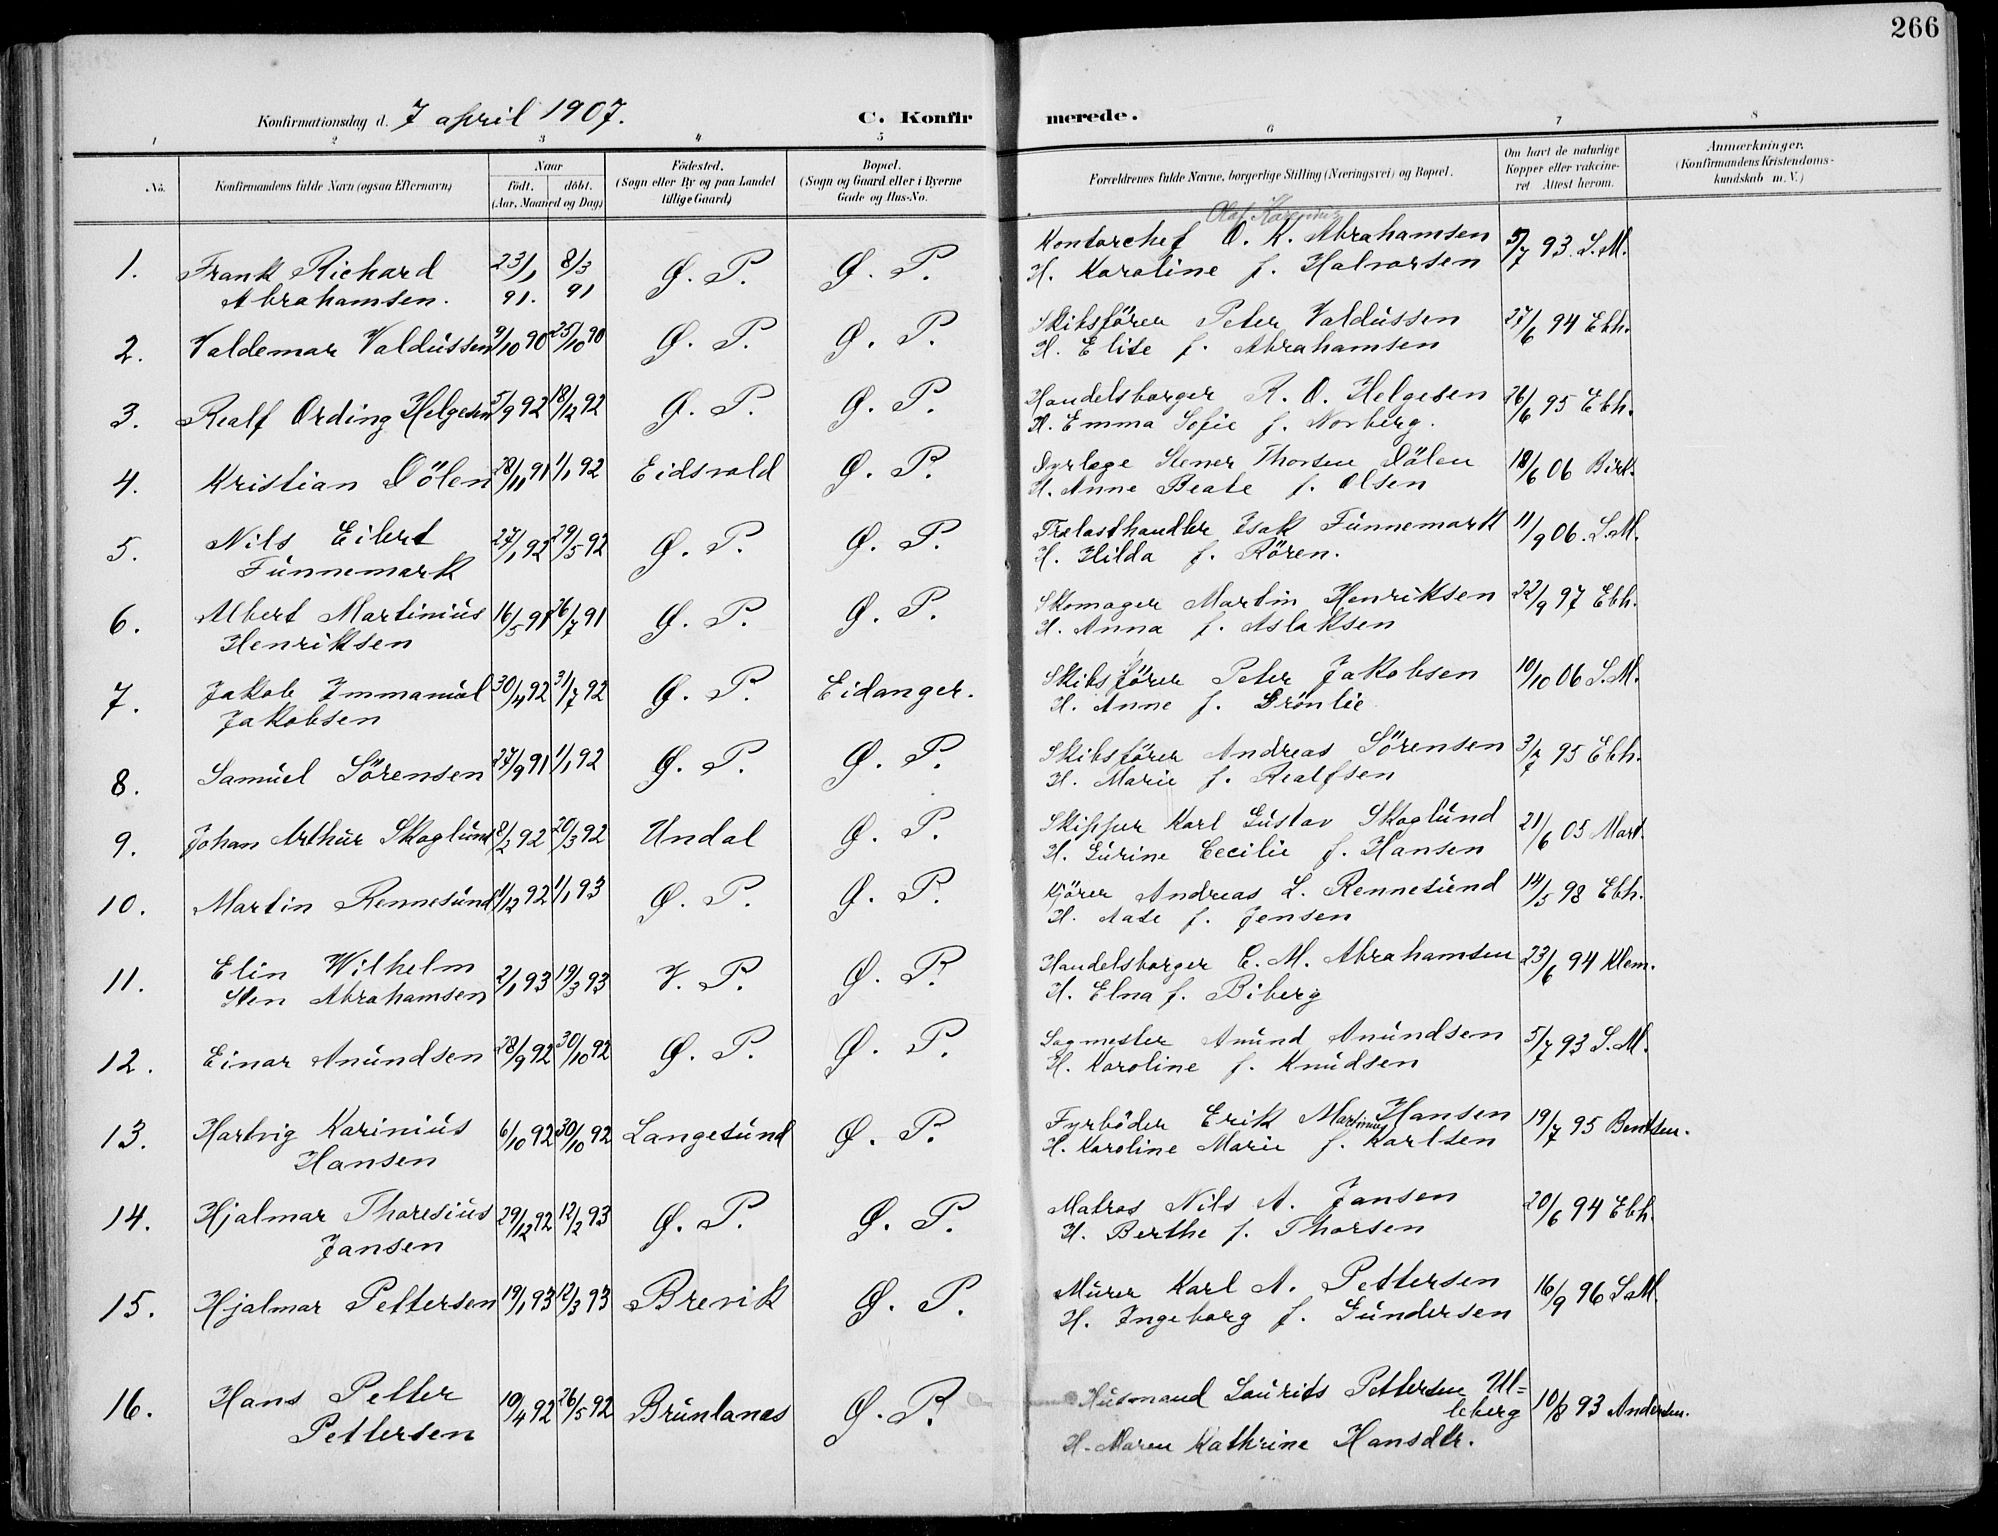 266
Konfirmationsdag d. 7 april 1907. C. Konfirmerede.
1 2 3 4 5 6 7 8
No. Konfirmandens fulde Navn (ogsaa Efternavn) Naar født. døbt. (Aar, Maaned og Dag) Fødested. (Sogn eller By og paa Landet tillige Gaard) Bopæl. (Sogn og Gaard eller i Byerne Gade og Hus-No. Forældrenes fulde Navne, borgerlige Stilling (Næringsvei) og Bopæl. Om havt de naturlige Kopper eller vakcineret Attest herom. Anmærkninger. (Konfirmandens Kristendomskundskab m. V.)
Olaf Karenius
1. Frank Richard 23/1 8/3 Ø. P. Ø. P. Kontorchef O. K. Abrahamsen 5/7 93. S.M.
Abrahamsen. 91. 91 H. Karoline f. Halvorsen
2. Valdemar Valdussen 9/10 90 25/10 90 Ø. P. Ø. P. Skibsfører Peter Valdussen 27/6 94 Ebh.
H. Elise f. Abrahamsen
3. Realf Ording Helgesen 5/9 92 18/12 92 Ø. P. Ø. P. Handelsborger R. O. Helgesen 26/6 95 Ebh.
H. Emma Sofie f. Norberg.
4. Kristian Dölen 28/11 91 1/1 92 Eidsvold Ø. P. Dyrlæge Stener Thorsen Dölen 18/6 06 Birk.
H. Anne Beate f. Olsen
5. Nils Eilert 27/1 92 29/5 92 Ø. P. Ø. P. Trelasthandler Isak Funnemark 11/9 06. S.M.
Funnemark H. Hilda f. Rören.
6. Albert Martinius 16/5 91 26/7 91 Ø. P. Ø. P. Skomager Martin Henriksen 22/9 97 Ebh.
Henriksen H. Anna f. Aslaksen
7. Jakob Immanuel 30/4 92 31/7 92 Ø. P. Eidanger. Skibsfører Peter Jakobsen 10/10 06 S.M.
Jakobsen H. Anne f. Grönlie
8. Samuel Sörensen 27/9 91 1/1 92 Ø. P. Ø. P. Skibsfører Andreas Sörensen 3/7 95 Ebh.
H. Marie f. Realfsen
9. Johan Arthur Skoglund 8/2 92 20/3 92 Undal Ø. P. Skipper Karl Gustav Skoglund 21/6 05 Mart.
H. Gurine Cecilie f. Hansen
10. Martin Rennesund 1/12 92 1/1 93 Ø. P. Ø. P. Kjörer Andreas L. Rennesund 14/5 98 Ebh.
H. Aase f. Jensen
11. Elin Wilhelm 2/1 93 19/3 93 V. P. Ø. P. Handelsborger C. M. Abrahamsen 23/6 94 Klem.
Sten Abrahamsen H. Elna f. Biberg
12. Einar Anundsen 28/9 92 30/10 92 Ø. P. Ø. P. Sagmester Anund Anundsen 5/7 93 S.M.
H. Karoline f. Knudsen
13. Hartvig Karinius 6/10 92 30/10 92 Langesund Ø. P. Fyrböder Erik Martinius Hansen 19/7 95 Bentsen.
Hansen H. Karoline Marie f. Karlsen
14. Hjalmar Thoresius 29/12 92 12/2 93 Ø. P. Ø. P. Matros Nils A. Jansen 20/6 94 Ebh.
Jansen H. Berthe f. Thorsen
15. Hjalmar Pettersen 19/1 93 12/3 93 Brevik Ø. P. Murer Karl A. Pettersen 16/9 96 S.M.
H. Ingeborg f. Gundersen
16. Hans Petter 10/4 92 26/5 92 Brunlanes Ø. P. Husmand Laurits Pettersen Ul=
Pettersen leberg 10/8 93 Andersen.
H. Maren Kathrine Hansdtr.